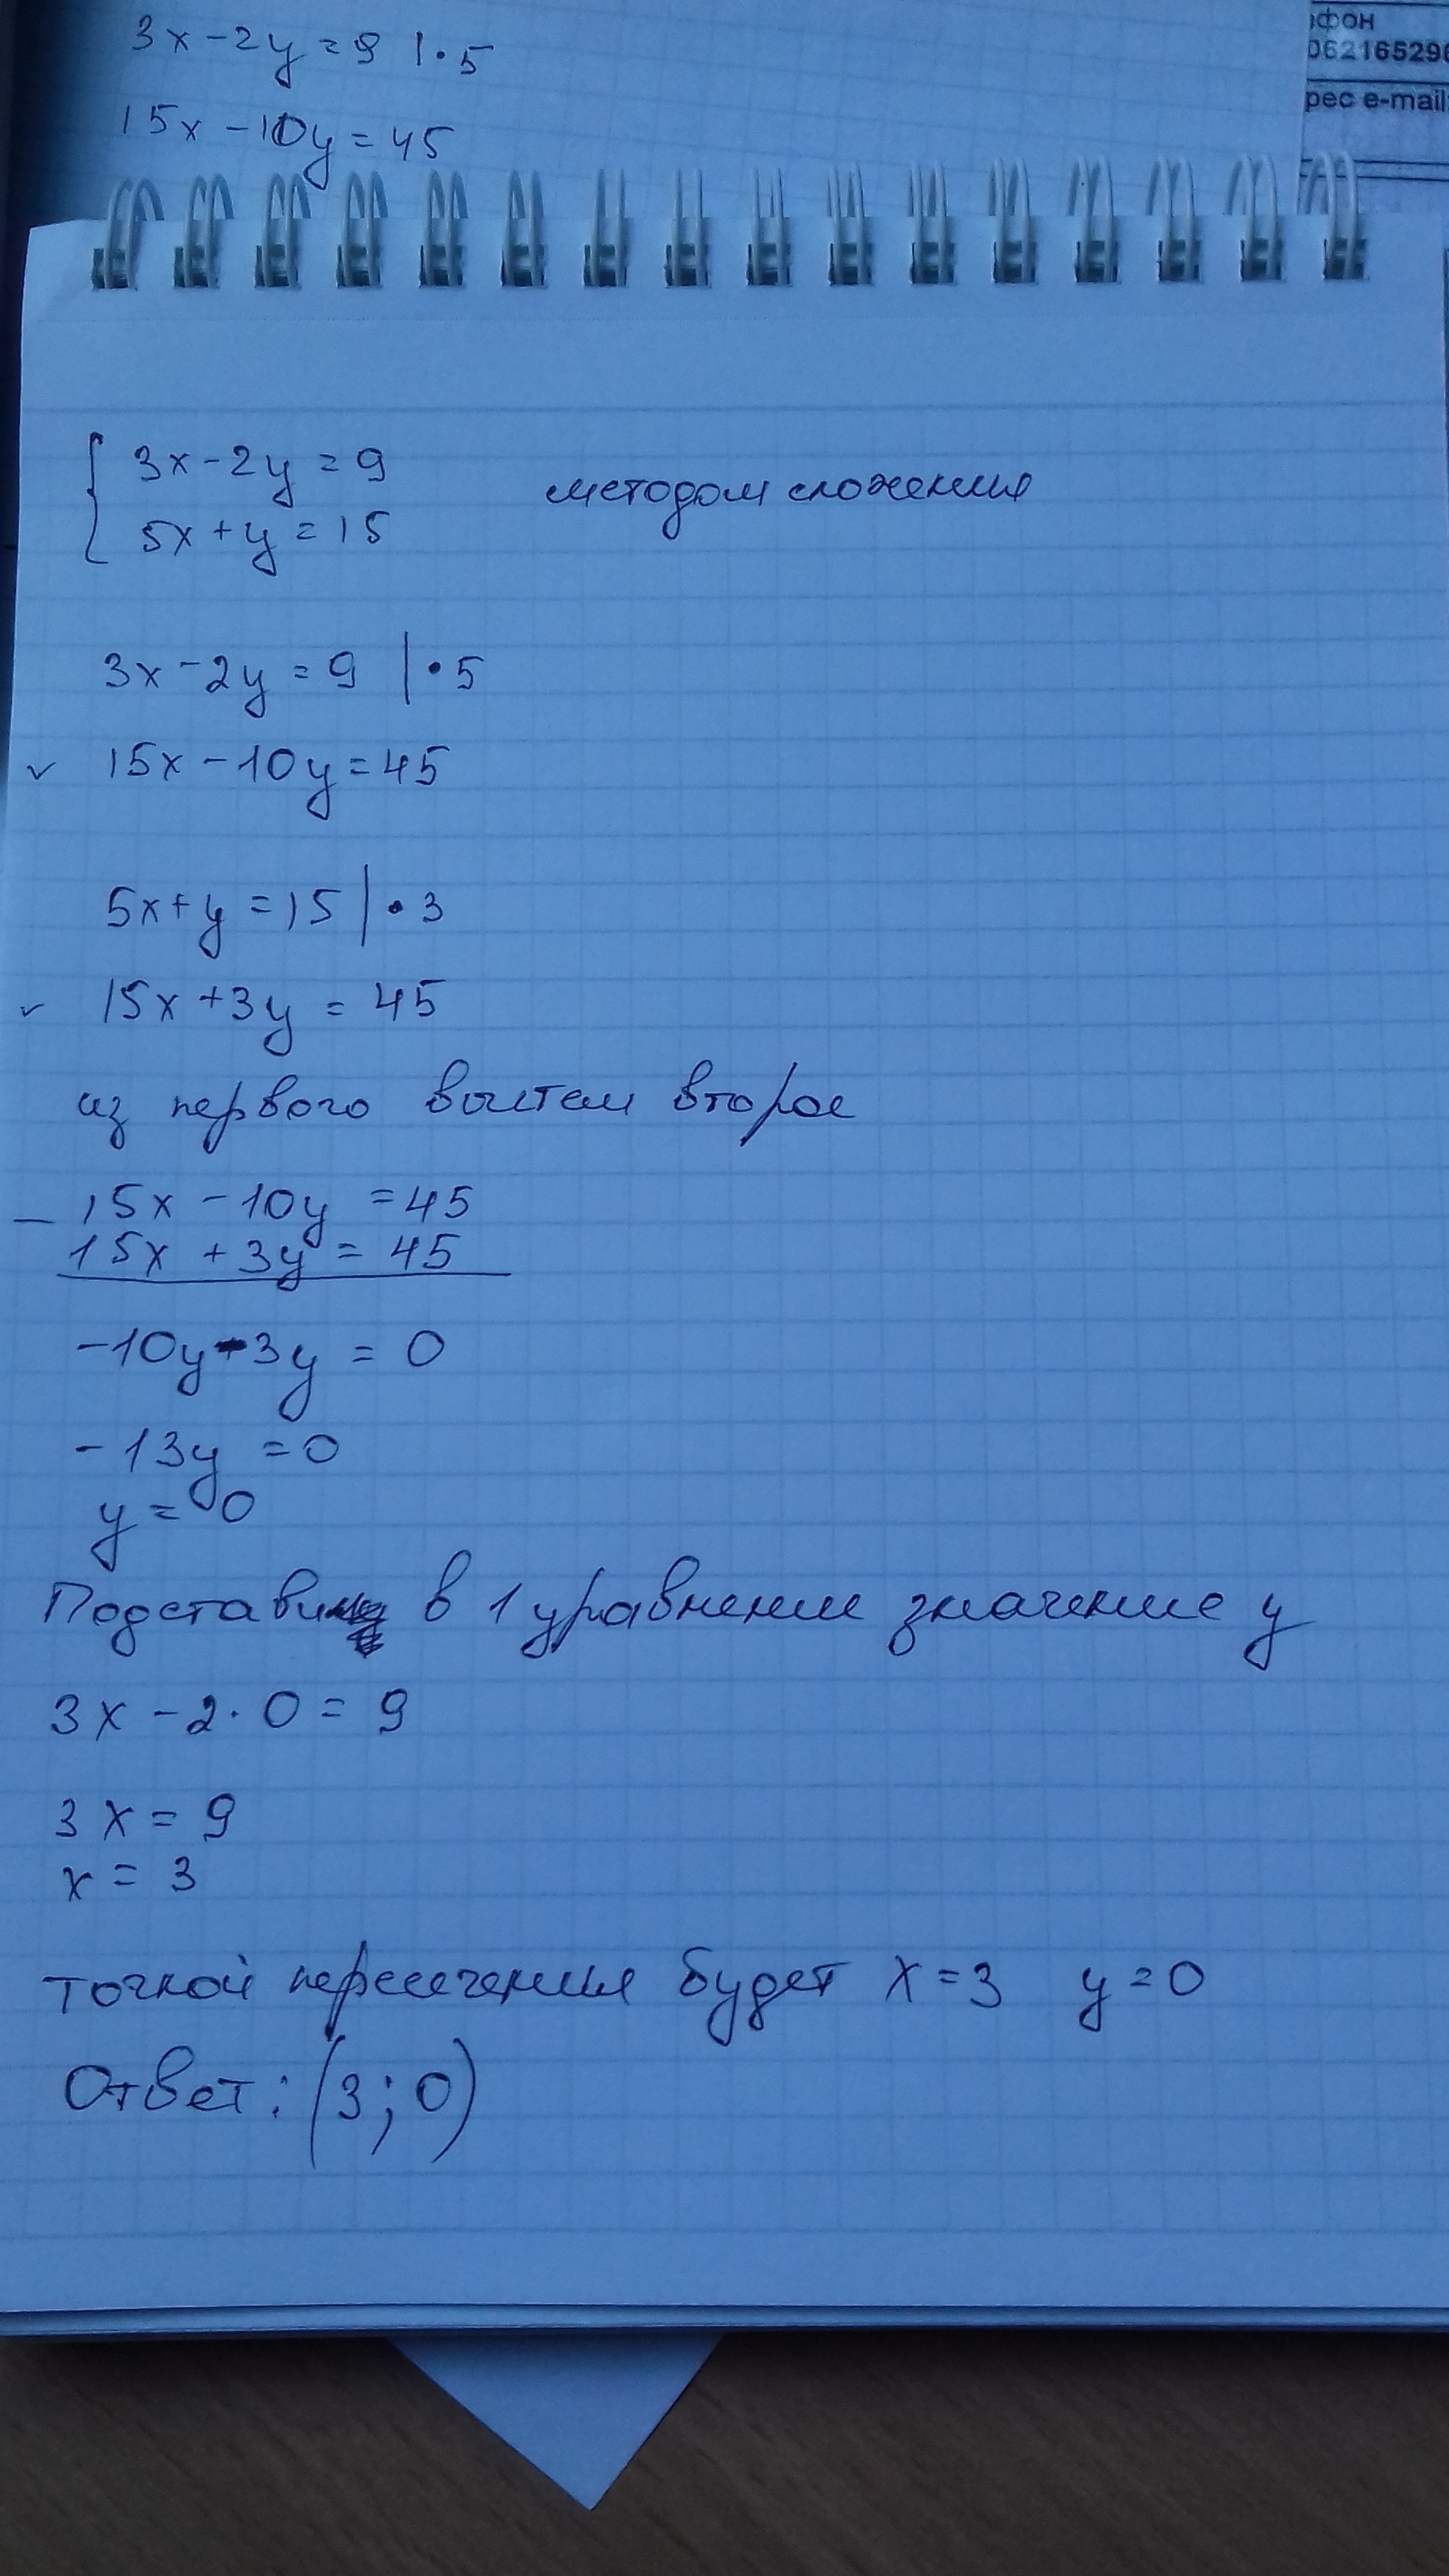 3x-2y=9 |·5
15x-10y=45
фон
06216529
рес e-mail:
3x-2y=9
5x+y=15
методом сложения
3x-2y=9 |·5
15x-10y=45
5x+y=15 |·3
15x+3y=45
из первого вычтем второе
15x-10y=45
15x+3y=45
-10y-3y=0
-13y=0
y=0
Подставим в 1 уравнение значение y
3x-2·0=9
3x=9
x=3
точкой пересечения будет x=3 y=0
Ответ: (3;0)